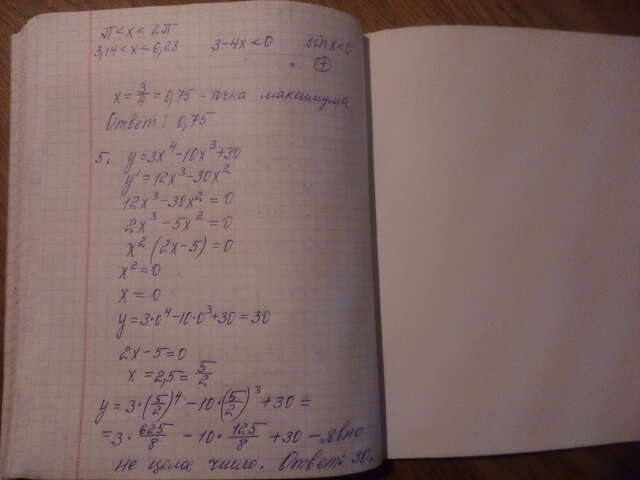 π < x < 2π
3,14 < x < 6,28 3-4x < 0 sin x < 0
+
x = 3/4 = 0,75 - точка максимума
Ответ: 0,75
5. y = 3x⁴ - 10x³ + 30
y' = 12x³ - 30x²
12x³ - 30x² = 0
2x³ - 5x² = 0
x² (2x - 5) = 0
x² = 0
x = 0
y = 3·0⁴ - 10·0³ + 30 = 30
2x - 5 = 0
x = 2,5 = 5/2
y = 3·(5/2)⁴ - 10·(5/2)³ + 30 =
= 3 · 625/8 - 10 · 125/8 + 30 - явно
не целое число. Ответ: 30.